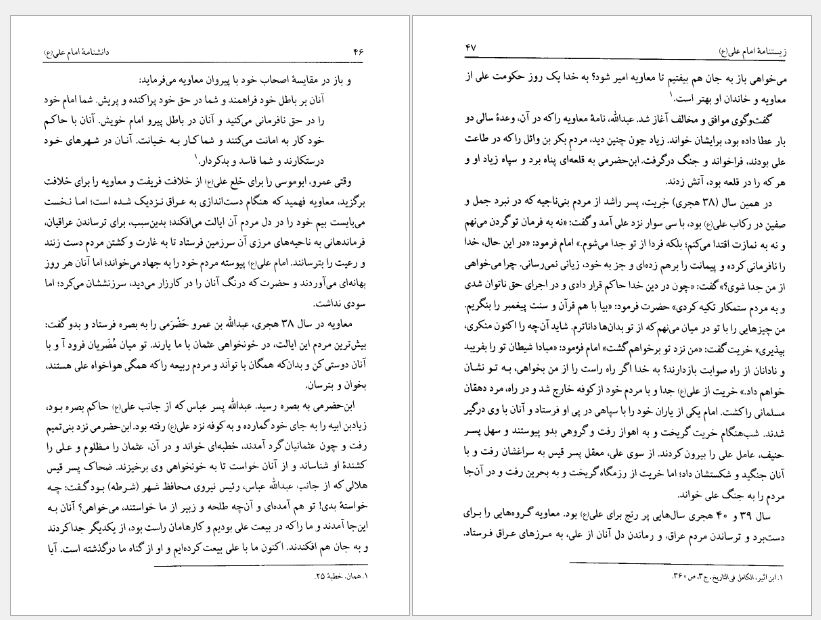 ۴۶ دانشنامهٔ امام علی(ع)
و باز در مقایسهٔ اصحاب خود با پیروان معاویه می‌فرماید:
آنان بر باطل خود فراهمند و شما در حق خود پراکنده و پریش. شما امام خود
را در حق نافرمانی می‌کنید و آنان در باطل پیرو امام خویش. آنان با حاکم
خود کار به امانت می‌کنند و شما کار به خیانت. آنان در شهرهای خود
درستکارند و شما فاسد و بدکردار.۱
وقتی عمرو، ابوموسی را برای خلع علی(ع) از خلافت فریفت و معاویه را برای خلافت
برگزید، معاویه فهمید که هنگام دست‌اندازی به عراق نزدیک شده است؛ اما نخست
می‌بایست بیم خود را در دل مردم آن ایالت می‌افکند؛ بدین‌سبب، برای ترساندن عراقیان،
فرماندهانی به ناحیه‌های مرزی آن سرزمین فرستاد تا به غارت و کشتن مردم دست زنند
و رعیت را بترسانند. امام علی(ع) پیوسته مردم خود را به جهاد می‌خواند؛ اما آنان هر روز
بهانه‌ای می‌آوردند و حضرت که درنگ آنان را در کارزار می‌دید، سرزنششان می‌کرد؛ اما
سودی نداشت.
معاویه در سال ۳۸ هجری، عبدالله بن عمرو حَضْرَمی را به بصره فرستاد و بدو گفت:
بیش‌ترین مردم این ایالت، در خونخواهی عثمان با ما یارند. تو میان مُضَریان فرود آ و با
آنان دوستی کن و بدان‌که همگان با تواند و مردم ربیعه را که همگی هواخواه علی هستند،
بخوان و بترسان.
ابن‌حضرمی به بصره رسید. عبدالله پسر عباس که از جانب علی(ع) حاکم بصره بود،
زیادبن ابیه را به جای خود گمارده و به کوفه نزد علی(ع) رفته بود. ابن‌حضرمی نزد بنی‌تمیم
رفت و چون عثمانیان گرد آمدند، خطبه‌ای خواند و در آن، عثمان را مظلوم و علی را
کشندهٔ او شناساند و از آنان خواست تا به خونخواهی وی برخیزند. ضحاک پسر قیس
هلالی که از جانب عبدالله عباس، رئیس نیروی محافظ شهر (شرطه) بود گفت: چه
خواستهٔ بدی! تو هم آمده‌ای و آن‌چه طلحه و زبیر از ما خواستند، می‌خواهی؟ آنان به
این‌جا آمدند و ما را که در بیعت علی بودیم و کارهامان راست بود، از یکدیگر جدا کردند
و به جان هم افکندند. اکنون ما با علی بیعت کرده‌ایم و او از گناه ما درگذشته است. آیا
۱. همان، خطبهٔ ۲۵.
زیستنامهٔ امام علی(ع) ۴۷
می‌خواهی باز به جان هم بیفتیم تا معاویه امیر شود؟ به خدا یک روز حکومت علی از
معاویه و خاندان او بهتر است.۱
گفت‌وگوی موافق و مخالف آغاز شد. عبدالله، نامهٔ معاویه را که در آن، وعدهٔ سالی دو
بار عطا داده بود، برایشان خواند. زیاد چون چنین دید، مردم بکر بن وائل را که در طاعت
علی بودند، فراخواند و جنگ درگرفت. ابن‌حضرمی به قلعه‌ای پناه برد و سپاه زیاد او و
هر که را در قلعه بود، آتش زدند.
در همین سال (۳۸ هجری) خِریت، پسر راشد از مردم بنی‌ناجیه که در نبرد جمل و
صفین در رکاب علی(ع) بود، با سی سوار نزد علی آمد و گفت: «نه به فرمان تو گردن می‌نهم
و نه به نمازت اقتدا می‌کنم؛ بلکه فردا از تو جدا می‌شوم.» امام فرمود: «در این حال، خدا
را نافرمانی کرده و پیمانت را برهم زده‌ای و جز به خود، زیانی نمی‌رسانی. چرا می‌خواهی
از من جدا شوی؟» گفت: «چون در دین خدا حاکم قرار دادی و در اجرای حق ناتوان شدی
و به مردم ستمکار تکیه کردی» حضرت فرمود: «بیا با هم قرآن و سنت پیغمبر را بنگریم.
من چیزهایی را با تو در میان می‌نهم که از تو بدان‌ها داناترم. شاید آن‌چه را اکنون منکری،
بپذیری» خریت گفت: «من نزد تو برخواهم گشت» امام فرمود: «مبادا شیطان تو را بفریبد
و نادانان از راه صوابت بازدارند؟ به خدا اگر راه راست را از من بخواهی، به تو نشان
خواهم داد.» خریت از علی(ع) جدا و با مردم خود از کوفه خارج شد و در راه، مرد دهقان
مسلمانی را کشت. امام یکی از یاران خود را با سپاهی در پی او فرستاد و آنان با وی درگیر
شدند. شب‌هنگام خریت گریخت و به اهواز رفت و گروهی بدو پیوستند و سهل پسر
حنیف، عامل علی را بیرون کردند. از سوی علی، معقل پسر قیس به سراغشان رفت و با
آنان جنگید و شکستشان داد؛ اما خریت از رزمگاه گریخت و به بحرین رفت و در آن‌جا
مردم را به جنگ علی خواند.
سال ۳۹ و ۴۰ هجری سال‌هایی پر رنج برای علی(ع) بود. معاویه گروه‌هایی را برای
دست‌برد و ترساندن مردم عراق، و رماندن دل آنان از علی، به مرزهای عراق فرستاد.
۱. ابن اثیر، الکامل فی التاریخ، ج۳، ص ۳۶۰.